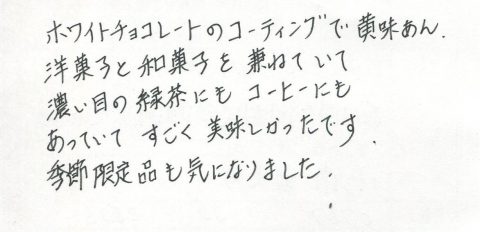 ホワイトチョコレートのコーティングで黄味あん.
洋菓子と和菓子を兼ねていて
濃い目の緑茶にもコーヒーにも
あっていてすごく美味しかったです.
季節限定品も気になりました.